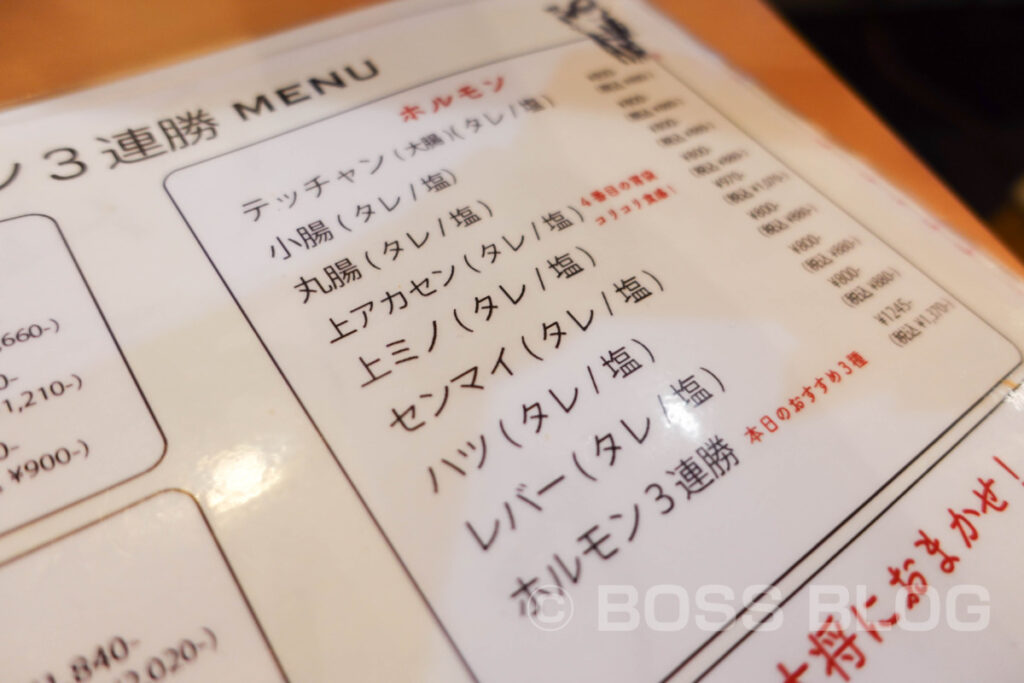 ン３連勝 MENU
ホルモン
テッチャン(大腸)(タレ/塩)
小腸(タレ/塩)
丸腸(タレ/塩)
上アカセン(タレ/塩) 4番目の胃袋
コリコリ食感！
上ミノ(タレ/塩)
センマイ(タレ/塩)
ハツ(タレ/塩)
レバー(タレ/塩)
ホルモン３連勝 本日のおすすめ3種
¥970-
(税込 ¥1,070-)
¥800-
(税込 ¥880-)
¥800-
(税込 ¥880-)
¥800-
(税込 ¥880-)
¥1245-
(税込 ¥1,370-)
,660-)
1,210-)
¥900-)
1,840-
2,020-)
大将におまかせ！
© BOSS BLOG